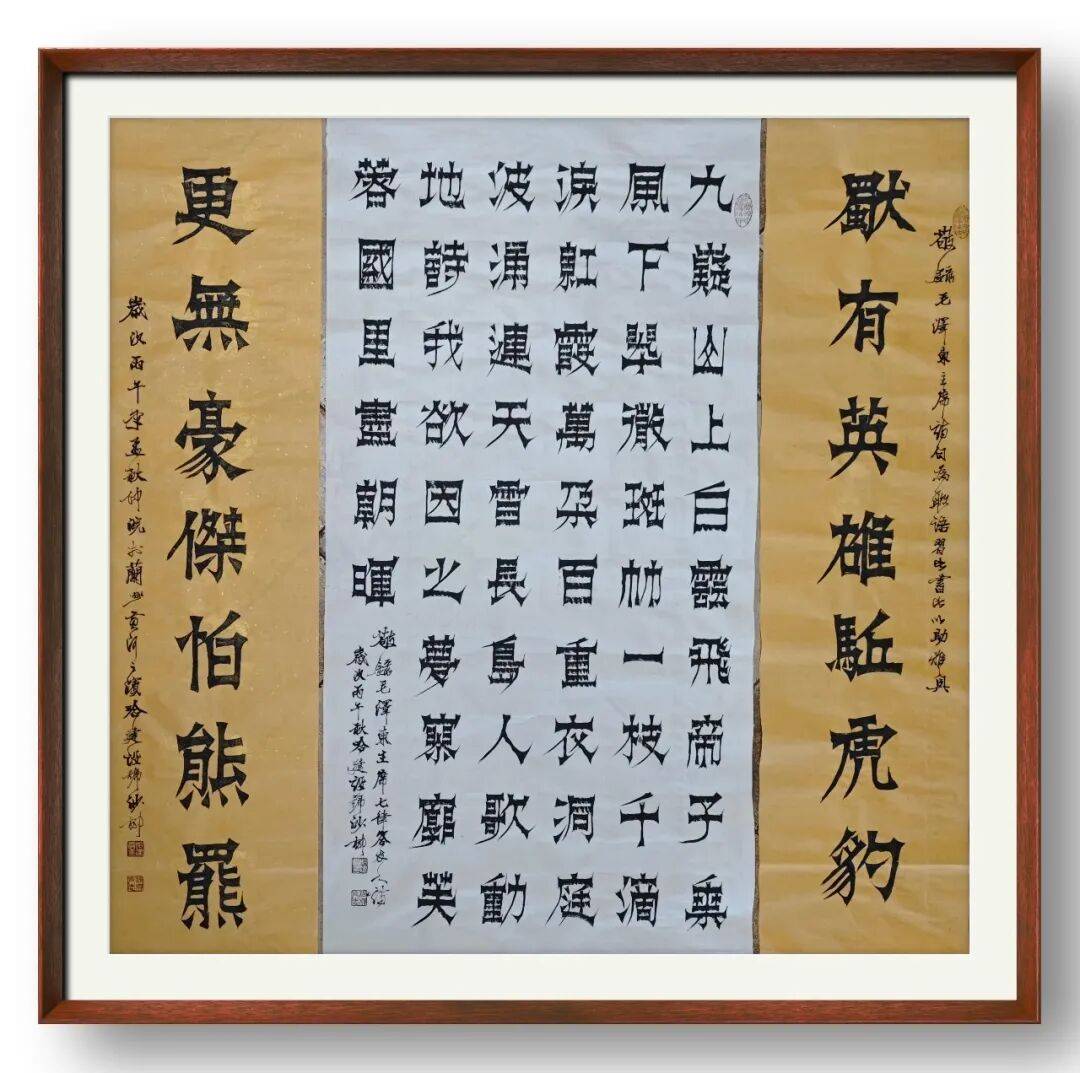 敬錄毛澤東主席詩句為聯語習其書法以助雅興
獨有英雄駈虎豹
九嶷山上白雲飛帝子乘
風下翠微斑竹一枝千滴
淚紅霞萬朵百重衣洞庭
波涌連天雪長島人歌動
地詩我欲因之夢寥廓芙
蓉國里盡朝暉
敬錄毛澤東主席七律答友人詩
歲次丙午秋哈建
更無豪傑怕熊羆
歲次丙午於蘭州黃河之濱哈建